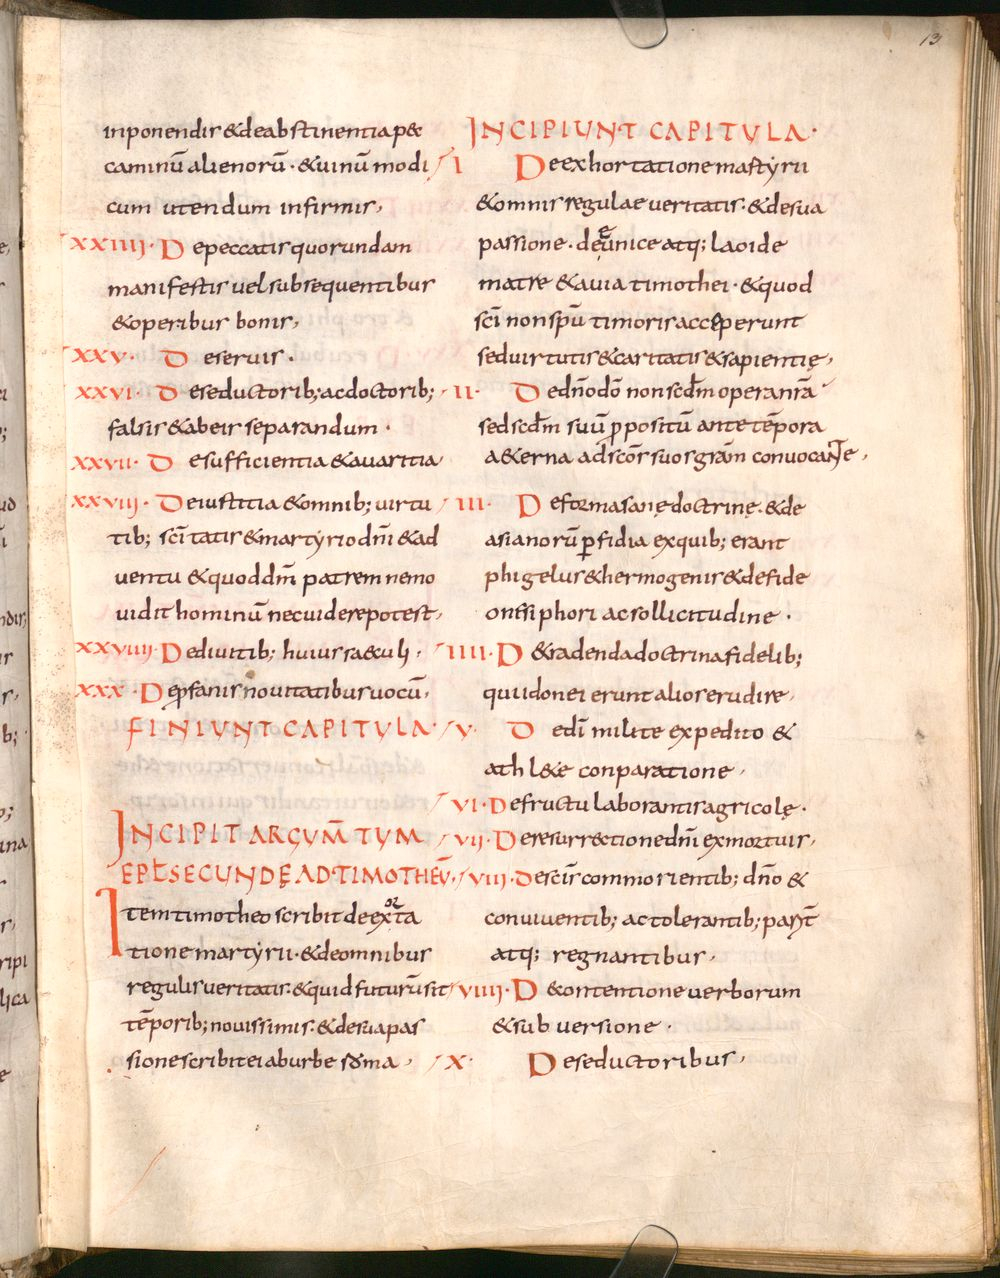 13
inponendis & de abstinentia pec
caminū alienorū · & uinū modi
cum utendum infirmis,
XXIIII · De peccatis quorundam
manifestis uel subsequentibus
& operibus bonis,
XXV · De seruis ·
XXVI · De seductorib; ac doctorib;
falsis & ab eis separandum ·
XXVII · De sufficientia & auaritia
XXVIII · De iustitia & omnib; uirtu
tib; sc̄itatis & martyrio dn̄i & ad
uentu & quod dm̄ patrem nemo
uidit hominū nec uidere potest,
XXVIIII · De diuitib; huius saeculi ·
XXX · De ꝓfanis nouitatibus uocū,
FINIUNT CAPITULA ·
INCIPIT ARGUM̄TUM
EPĹ SECUNDĘ AD TIMOTHEŪ ·
Item timotheo scribit de exorta
tione martyrii · & de omnibus
regulis ueritatis · & quid futurū sit
tēporib; nouissimis · & de sua pas
sione scribit ei ab urbe roma,
INCIPIUNT CAPITULA ·
I De exhortatione martyrii
& omnis regulae ueritatis · & de sua
passione · de eunice atq; laoide
matre & auia timothei · & quod
sc̄i non sp̄ū timoris acceperunt
sed uirtutis & caritatis & sapientię,
II · De dn̄o dō non scdm̄ opera nr̄a
sed scdm̄ suū ꝓpositū ante tēpora
aeterna ad sc̄os suos gr̄am conuocante,
III · De forma sanę doctrinę · & de
asianorū ꝑfidia ex quib; erant
phigelus & hermogenis & de fide
onesiphori ac sollicitudine ·
IIII · De tradenda doctrina fidelib;
qui idonei erunt alios erudire,
V · De dī milite expedito &
athletae conparatione,
VI · De fructu laborantis agricolę ·
VII · De resurrectione dn̄i ex mortuis,
VIII · De sc̄is commorientib; dn̄o &
conuiuentib; ac tolerantib; parit̄
atq; regnantibus,
VIIII · De contentione uerborum
& subuersione ·
X · De seductoribus,